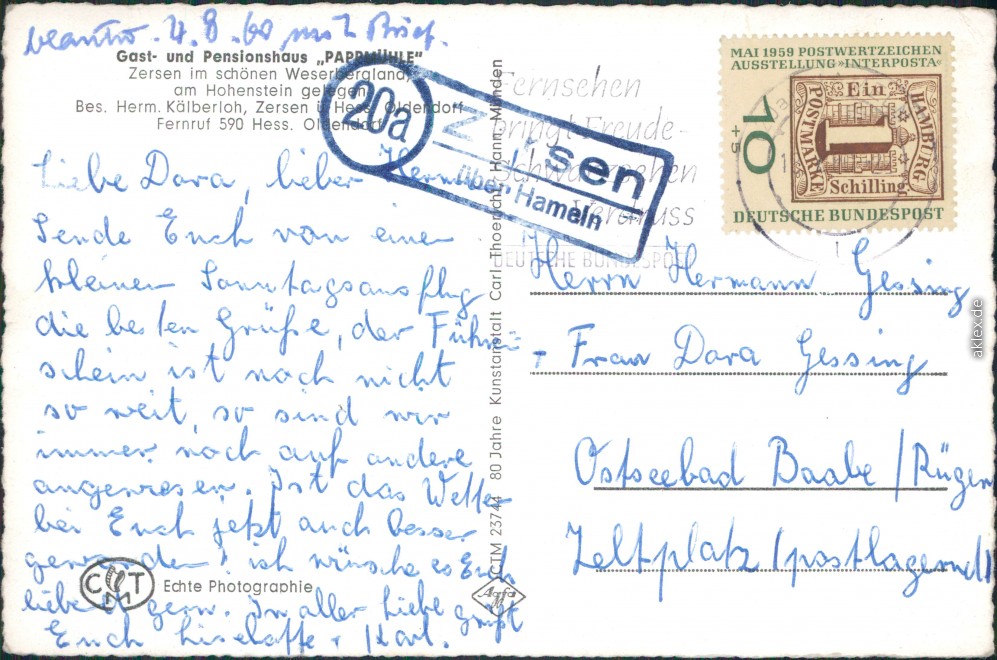 beantw. 4.8.60 mit Brief.
Gast- und Pensionshaus „PAPPMÜHLE"
Zersen im schönen Weserbergland,
am Hohenstein gelegen
Bes. Herm. Kälberloh, Zersen ü. Hess. Oldendorf
Fernruf 590 Hess. Oldendorf
Liebe Dora, lieber Hermann
Sende Euch von einem
kleinen Sonntagsausflug
die besten Grüße, der Führer-
schein ist noch nicht
so weit, so sind wir
immer noch auf andere
angewiesen. Ist das Wetter
bei Euch jetzt auch besser
geworden? ich wünsche es Euch
lieben gern. In aller Liebe grüßt
Euch Liselotte + Karl.
CMT
Echte Photographie
CTM 23744 80 Jahre Kunstanstalt Carl Thoericht, Hann.-Münden
Agfa
20a
Zersen
über Hameln
Fernsehen
bringt Freude-
Schwarzsehen
Verdruss
DEUTSCHE BUNDESPOST
MAI 1959 POSTWERTZEICHEN
AUSSTELLUNG »INTERPOSTA«
10
+5
Ein
POSTMARKE
HAMBURG
1
Schilling
DEUTSCHE BUNDESPOST
Herrn Hermann Gessing
+ Frau Dora Gessing
Ostseebad Baabe / Rügen
Zeltplatz (postlagernd)
aklex.de